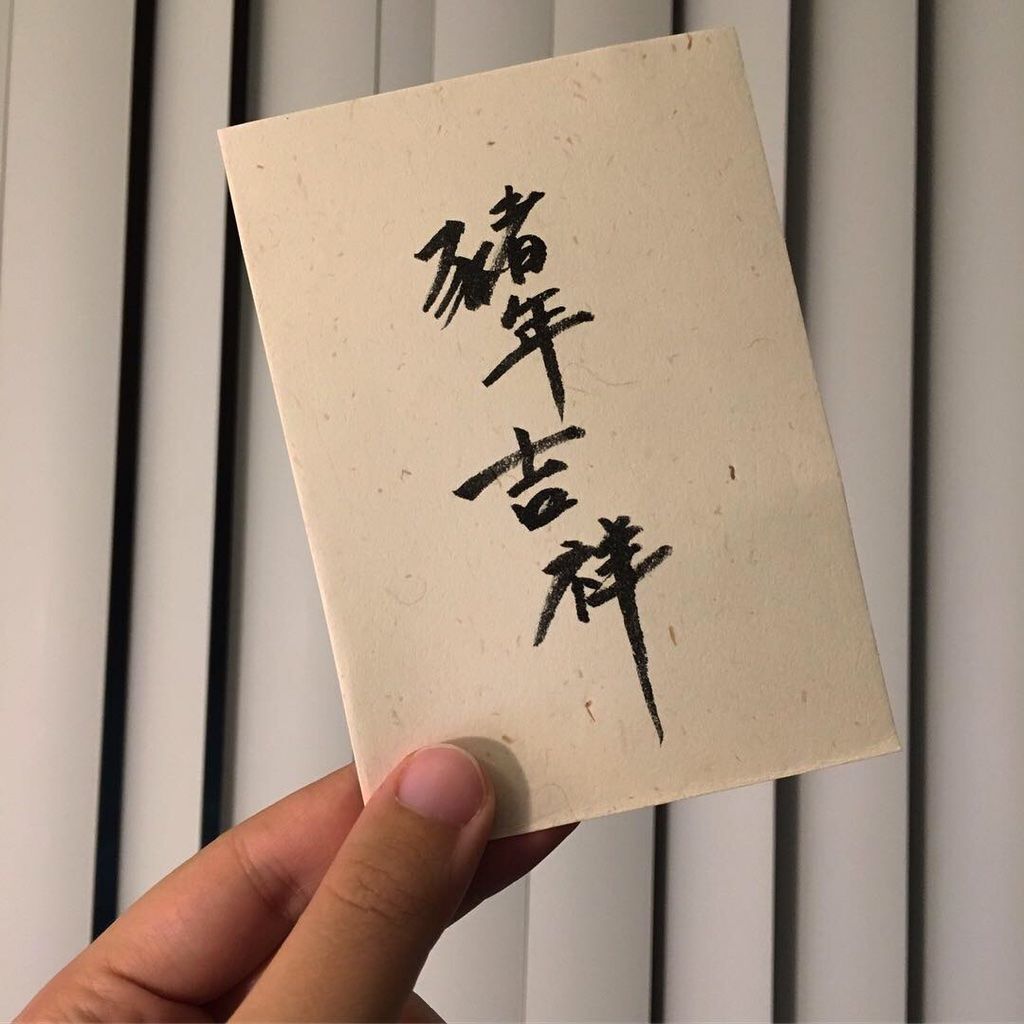 豬年吉祥